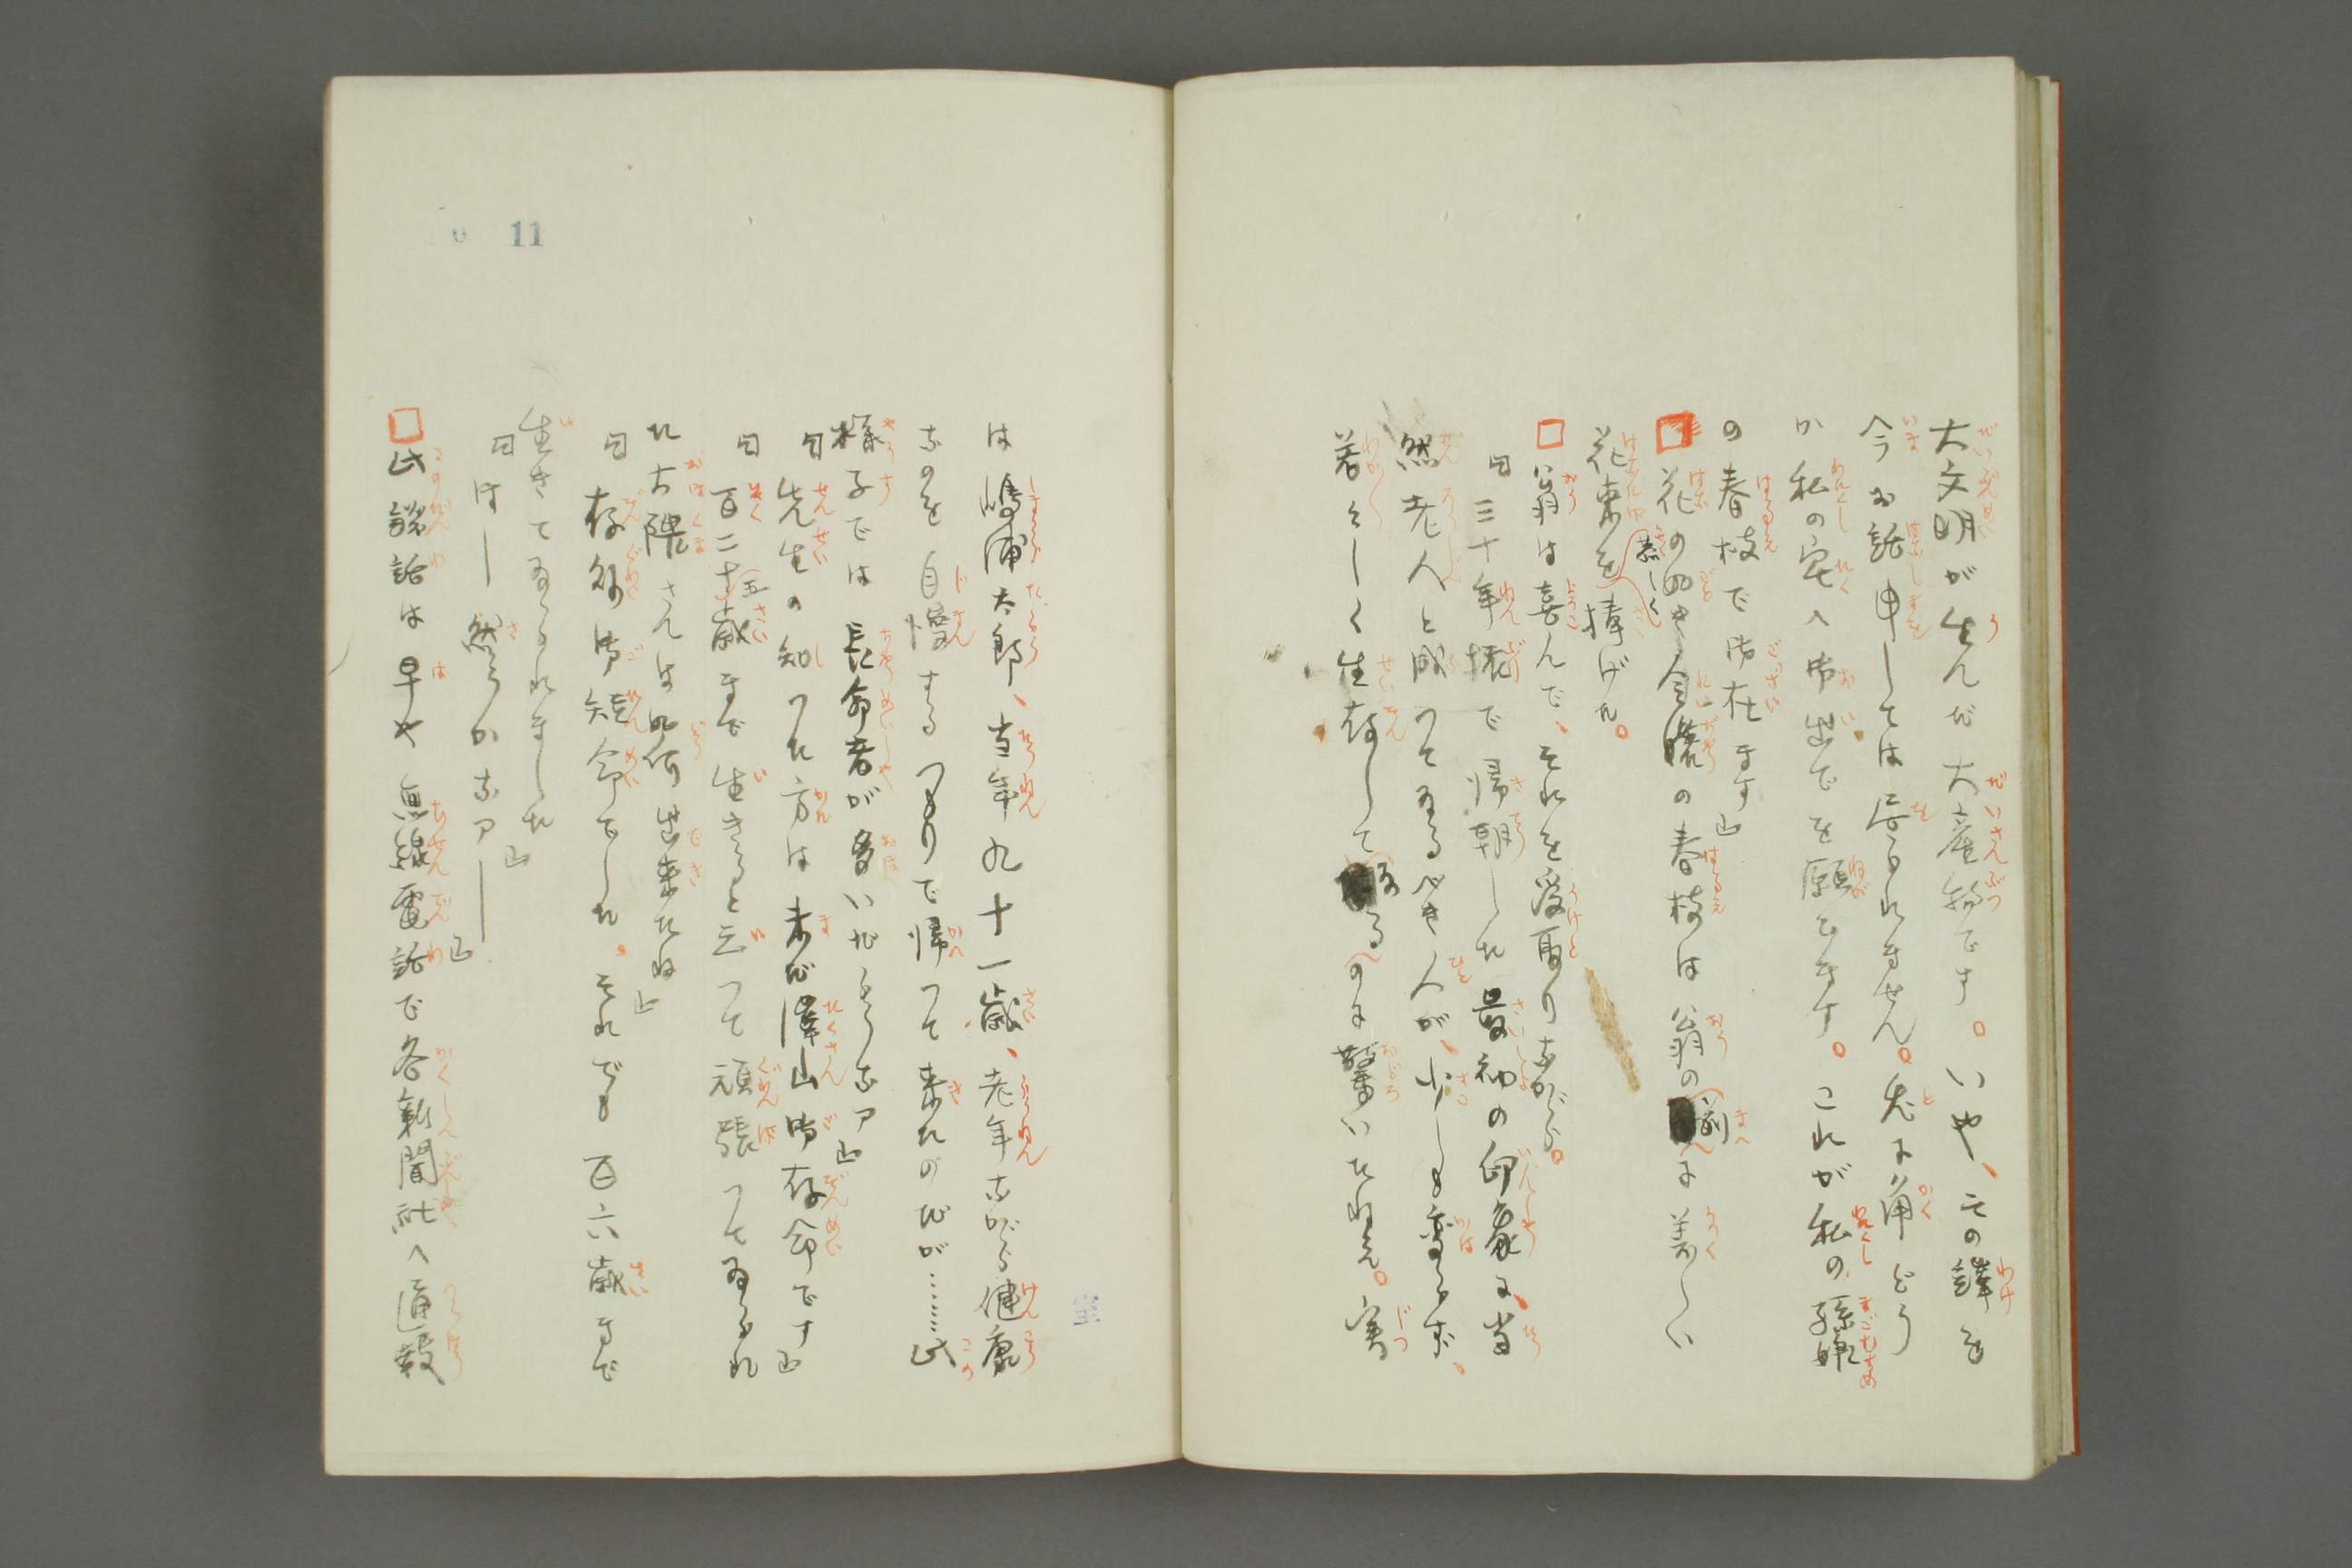 大文明が生んだ大産物です。いや、その譯を
今お話申しては居られません。兎に角どう
か私の宅へ御出でを願ひます。これが私の孫娘
の春枝で御在ます』
花の如き令孃の春枝は翁の前に美しい
花束を恭しく捧げた。
翁は喜んで、それを受取りながら。
『三十年振で帰朝した最初の印象は、当
然老人と成つてゐるべき人が、少しも変らず、
若々しく生存してゐるのに驚いたねえ。実
は嶋浦太郎、当年九十一歳、老年ながら健康
なのを自慢するつもりで帰つて来たのだが……此
様子では長命者が多いだらうなア』
『先生の知つた方は未だ澤山御存命です』
『百二十五歳まで生きると云つて頑張つてゐられ
た大隈さんは如何出来たね』
『存外御短命でした。それでも百六歳まで
生きてゐられました』
『ほー然うかなア――』
此談話は早や無線電話で各新聞社へ通報
11